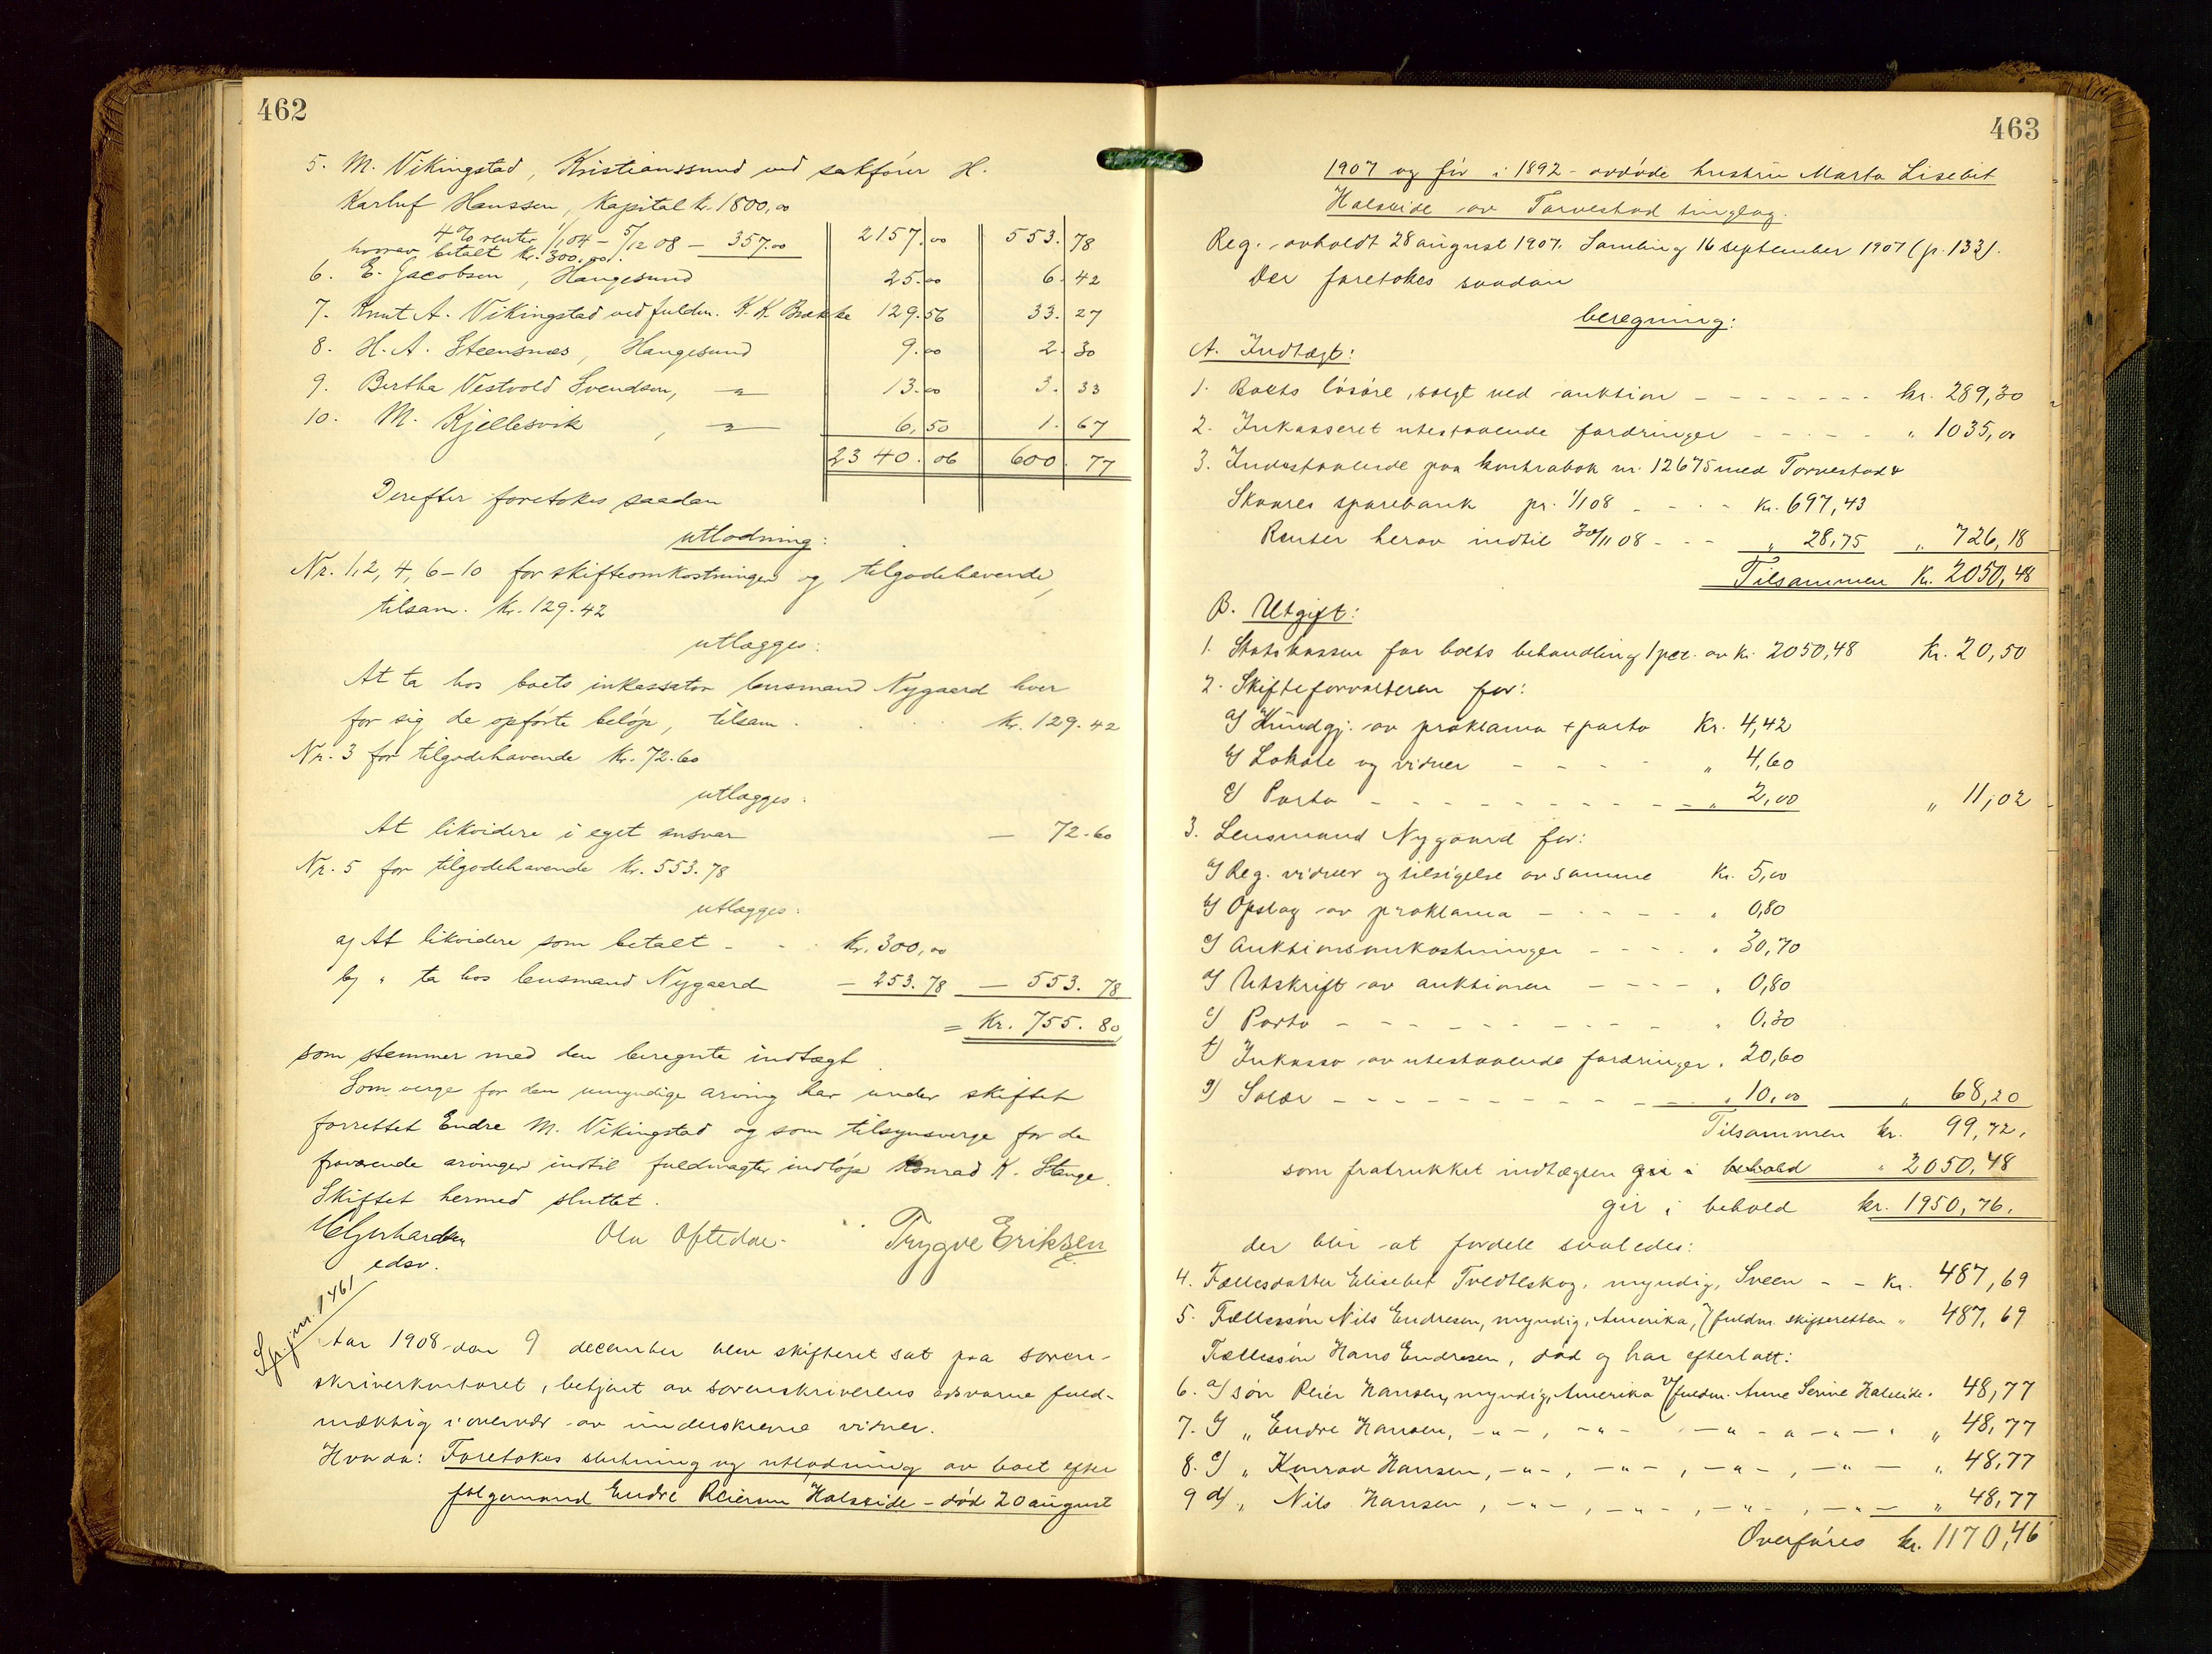 462
5. M. Vikingstad, Kristianssund ved sakfører H.
Karluf Hanssen, Kapital kr. 1800,00
4% renter 1/1 04 – 5/12 08 – 357.00 2157.00 553.78
hvorav betalt kr. 300.00.
6. E. Jacobsen, Haugesund 25.00 6.42
7. Knut A. Vikingstad ved fuldm. K. K. Brække 129.56 33.27
8. H. A. Steensnæs, Haugesund 9.00 2.30
9. Bertha Vestvold Svendsen, –"– 13.00 3.33
10. M. Kjellesvik, –"– 6,50 1.67
2340.06 600.77
Derefter foretokes saadan
utlodning:
Nr. 1, 2, 4, 6–10 for skifteomkostninger og tilgodehavende,
tilsam. kr. 129.42
utlægges:
At ta hos boets inkassator lensmand Nygaard hver
for sig de opførte beløp, tilsam. kr. 129.42
Nr. 3 for tilgodehavende kr. 72.60
utlægges:
At likvidere i eget ansvar — 72.60
Nr. 5 for tilgodehavende kr. 553.78
utlægges:
a) At likvidere som betalt - - kr. 300,00
b) " ta hos lensmand Nygaard — 253.78 — 553.78
= Kr. 755.80
som stemmer med den beregnte indtægt
Som verge for den umyndige arving har under skiftet
forrettet Endre M. Vikingstad og som tilsynsverge for de
fraværende arvinger indtil fuldmagter indløp Konrad K. Stange.
Skiftet hermed sluttet.
Ola Oftedal Trygve Eriksen
edsv.
Aar 1908 den 9 december blev skifteret sat paa soren-
skriverkontoret, betjent av sorenskriverens edsvorne fuld-
mæktig i overvær av underskrevne vidner.
Hvorda: Foretokes slutning og utlodning av boet efter
følgemand Endre Reiersen Halseide – død 20 august
463
1907 og før i 1892 avdøde hustru Marta Lisebet
Halseide av Torvestad tinglag.
Reg. avholdt 28 august 1907. Samling 16 september 1907 (p. 133).
Der foretokes saadan
beregning:
A. Indtægt:
1. Boets løsøre, solgt ved auktion - - - kr. 289,30
2. Inkasseret utestaaende fordringer - - - " 1035,00
3. Indestaaende paa kontrabok nr. 12675 med Torvestad &
Skaares sparebank pr. 1/1 08 - - - kr. 697,43
Renter herav indtil 30/11 08 - - - " 28,75 " 726,18
Tilsammen Kr. 2050,48
B. Utgift:
1. Statskassen for boets behandling 1 pct. av kr. 2050,48 kr. 20,50
2. Skifteforvalteren for:
a) Kundgj. av proklama + porto Kr. 4,42
b) Lokale og vidner - - - " 4,60
c) Porto - - - " 2,00 " 11,02
3. Lensmand Nygaard for:
a) Reg. vidner og tilsigelse av samme Kr. 5,00
b) Opslag av proklama - - - " 0,80
c) Auktionsomkostninger - - - " 30,70
d) Utskrift av auktionen - - - " 0,80
e) Porto - - - " 0,30
f) Inkasso av utestaaende fordringer " 20,60
g) Salær - - - " 10,00 " 68,20
Tilsammen kr. 99,72.
som fratrukket indtægten gir i behold " 2050,48
gir i behold kr. 1950,76.
der blir at fordele saaledes:
4. Fællesdatter Elisebet Tvedteskog, myndig, Sveen - - Kr. 487,69
5. Fællessøn Nils Endresen, myndig, Amerika, v/fuldm. skifteretten " 487,69
Fællessøn Hans Endresen, død og har efterlatt:
6. a) søn Reier Hansen, myndig, Amerika v/fuldm. Anne Serine Halseide. 48,77
7. b) " Endre Hansen, –"–, –"– –"– –"– –"– " 48,77
8. c) " Konrad Hansen, –"–, –"–, –"–, –"– " 48,77
9 d) " Nils Hansen, –"–, –"–, –"–, –"– " 48,77
Overføres kr. 1170,46